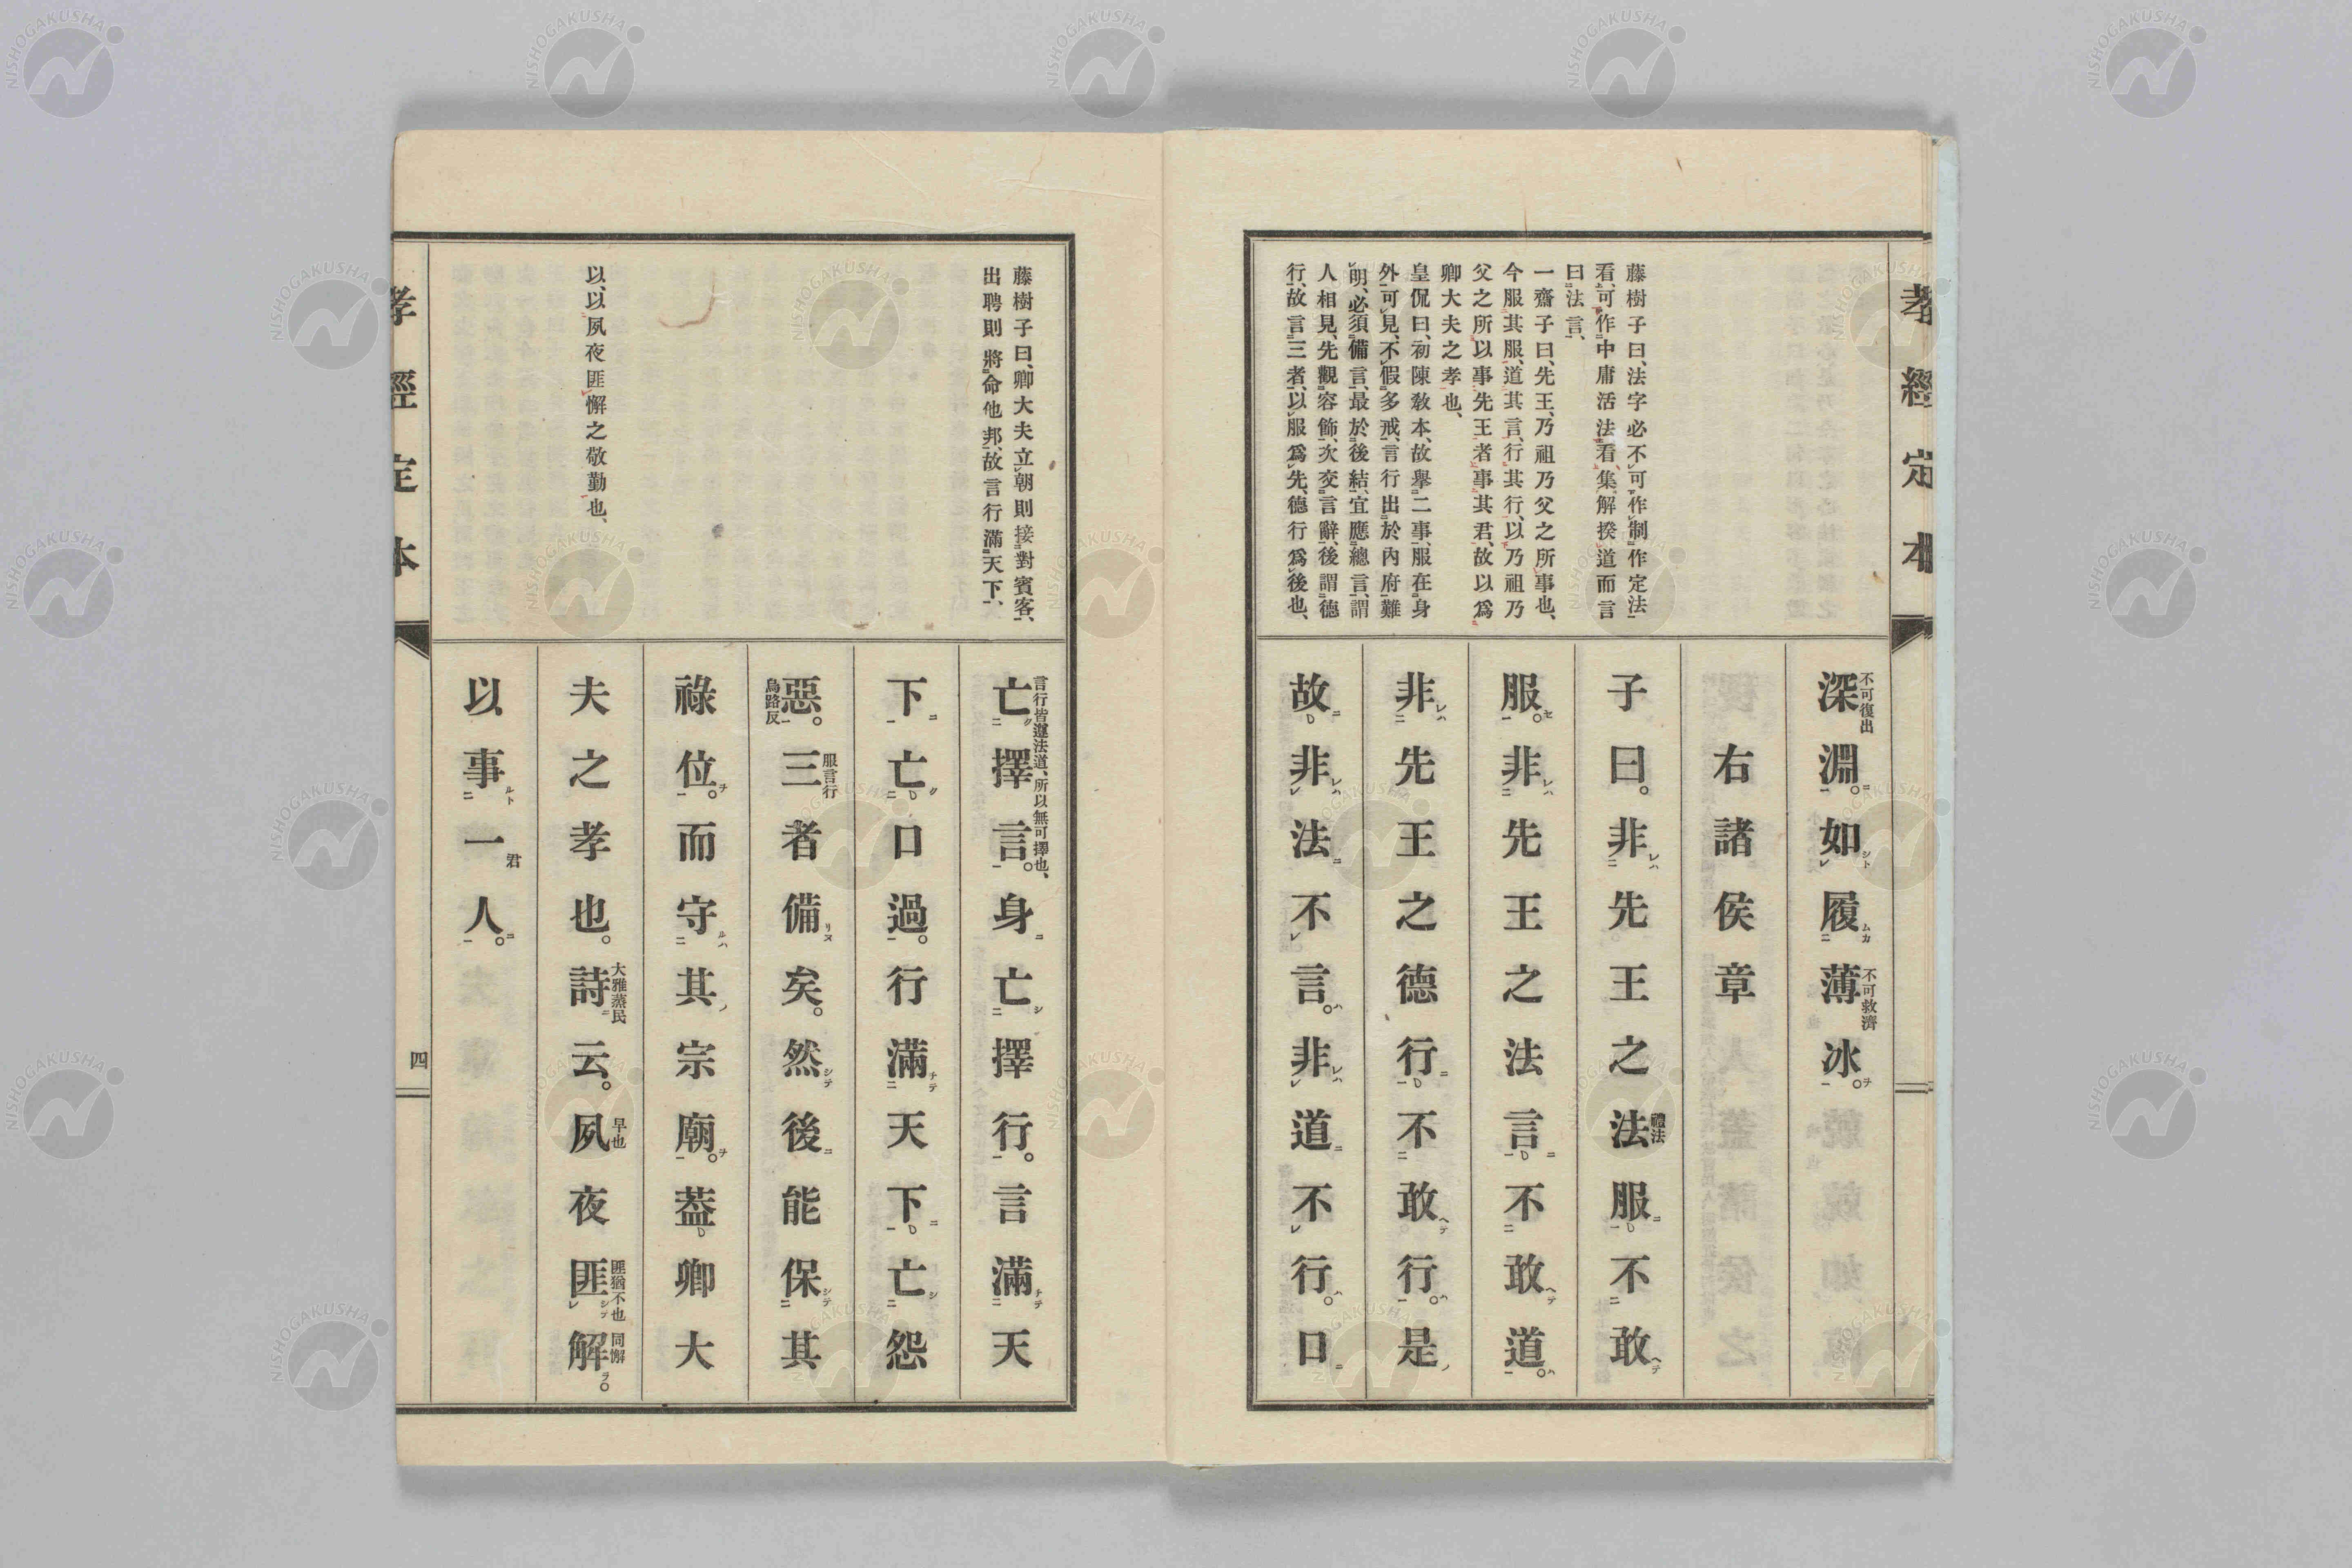 孝經定本
藤樹子曰、法字必不可作制作定法
看、可作中庸活法看、集解揆道而言
曰法言、
一齋子曰、先王、乃祖乃父之所事也、
今服其服、道其言、行其行、以乃祖乃
父之所以事先王者、事其君、故以爲
卿大夫之孝也、
皇侃曰、初陳教本、故舉二事、服在身
外可見、不假多戒、言行出於內府難
明、必須備言、最於後結、宜應總言、謂
人相見、先觀容飾、次交言辭、後謂德
行、故言三者、以服爲先、德行爲後也、
深淵。如履薄冰。
不可復出
不可救濟
右諸侯章
子曰。非先王之法服不敢
禮法
服。非先王之法言不敢道。
非先王之德行不敢行。是
故非法不言。非道不行。口
藤樹子曰、卿大夫立朝則接對賓客、
出聘則將命他邦、故言行滿天下、
以、以夙夜匪懈之敬勤也、
亡擇言。身亡擇行。言滿天
言行皆遵法道、所以無可擇也、
下亡口過。行滿天下亡怨
惡。三者備矣。然後能保其
烏路反
服言行
祿位。而守其宗廟。葢卿大
夫之孝也。詩云。夙夜匪解。
大雅蒸民
早也
匪猶不也
同懈
以事一人。
君
孝經定本
四